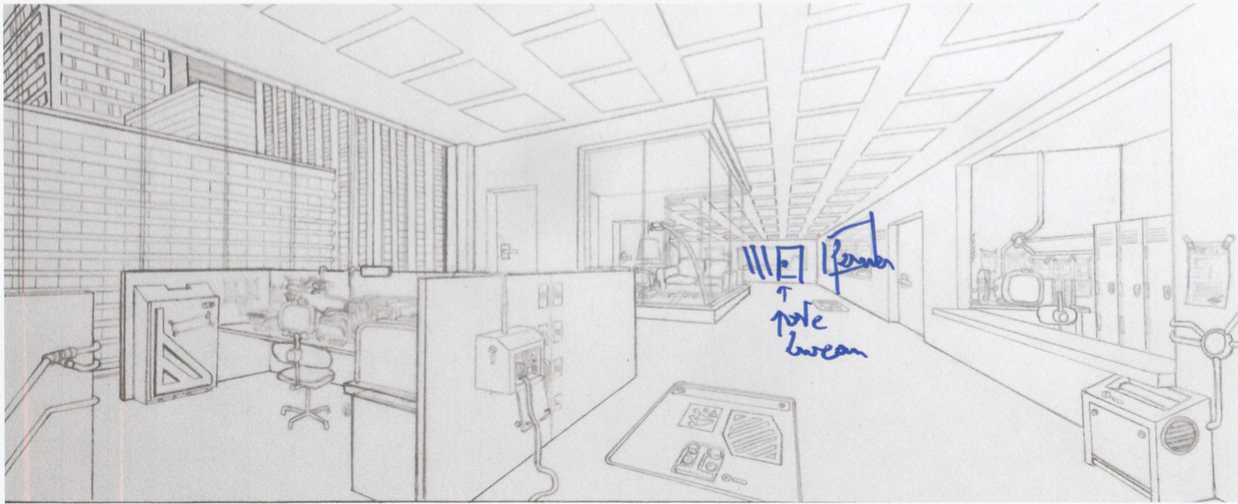 fermer
porte
bureau